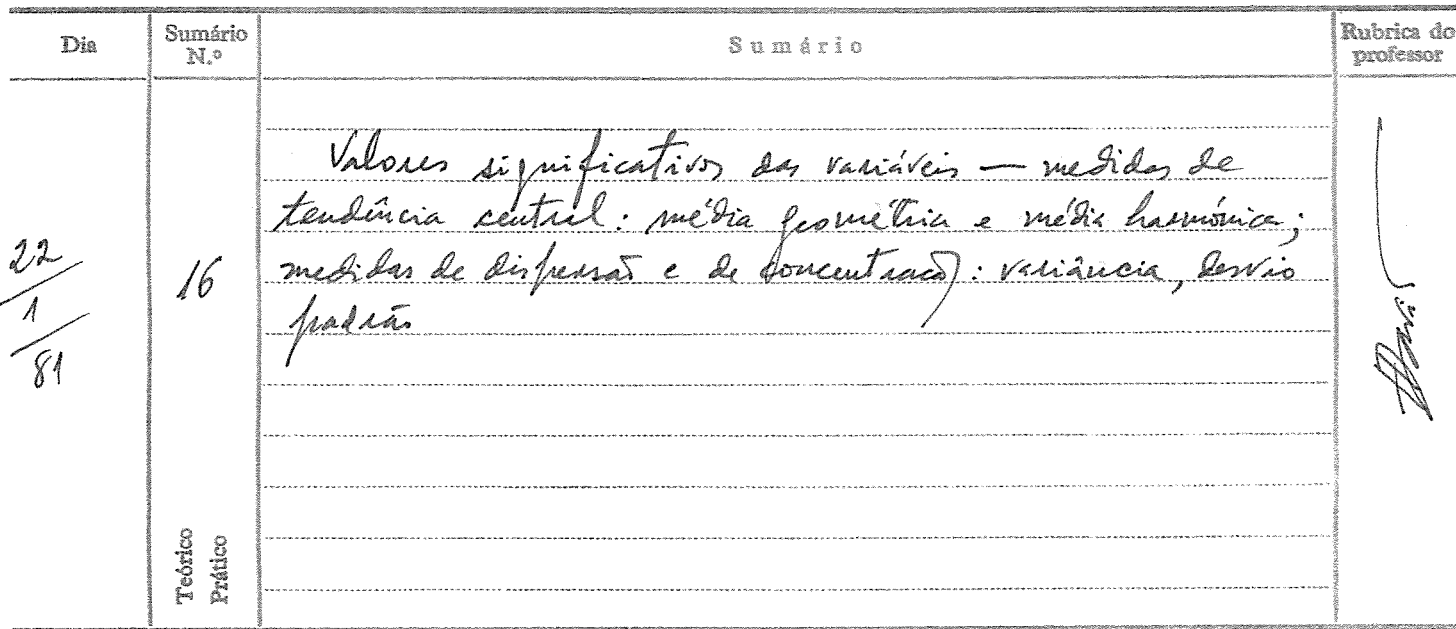 Dia
Sumário N.º
Sumário
Rubrica do professor
22/1/81
16
Valores significativos das variáveis — medidas de
tendência central: média geométria e média harmónica;
medidas de dispersão e de concentração: variância, desvio
padrão
Teórico
Prático